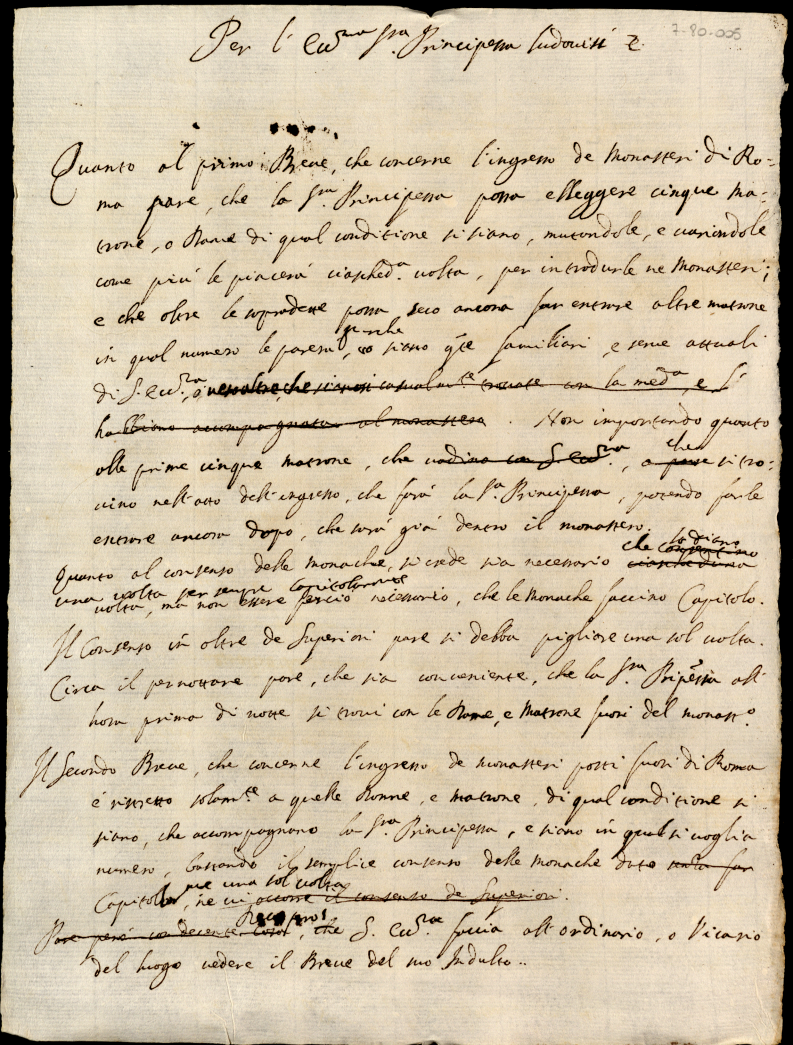 7-90-005
Per l' Ecc.ma Sra. Principessa Ludovisi
Quanto al primo Breve, che concerne l'ingresso de Monasteri di Ro-
ma pare, che la Sra. Principessa possa elleggere cinque ma-
trone, o Dame di qual conditione si siano, mutandole, e variandole
come più le piacerà ciasched.a volta, per introdurle ne Monasteri;
e che oltre le sopradette possa seco ancora far entrare altre matrone
in qual numero le parerà, purche siano familiari, e serve attuali
di S. Ecc.za, che siano casualm.te trovate con la med.a, e l'
habbiano accompagnata al monastero. Non importando quanto
alle prime cinque matrone, che vadino con S. Ecc.za, che si tro-
vino nell'atto dell'ingresso, che farà la S.ra Principessa, potendo farle
entrare ancora dopo, che sarà già dentro il monastero.
Quanto al consenso delle monache, si crede sia necessario che lo diano
una volta per sempre capitolarmente
volta, ma non essere perciò necessario, che le Monache faccino Capitolo.
Il Consenso in oltre de Superiori pare si debba pigliare una sol volta.
Circa il pernottare pare, che sia conveniente, che la Sra. Prip.essa all'
hora prima di notte si trovi con le Dame, e Matrone fuori del monast.o
Il Secondo Breve, che concerne l'ingresso de monasteri posti fuori di Roma
è ristretto solam.te a quelle Donne, e matrone, di qual conditione si
siano, che accompagnano la Sra. Principessa, e siano in qualsivoglia
numero, bastando il semplice consenso delle monache
Capitolo, una sol volta, ne vi occorre il consenso de Superiori.
Pare però con decente, che S. Ecc.za faccia all'ordinario, o Vicario
del luogo vedere il Breve del suo Indulto..